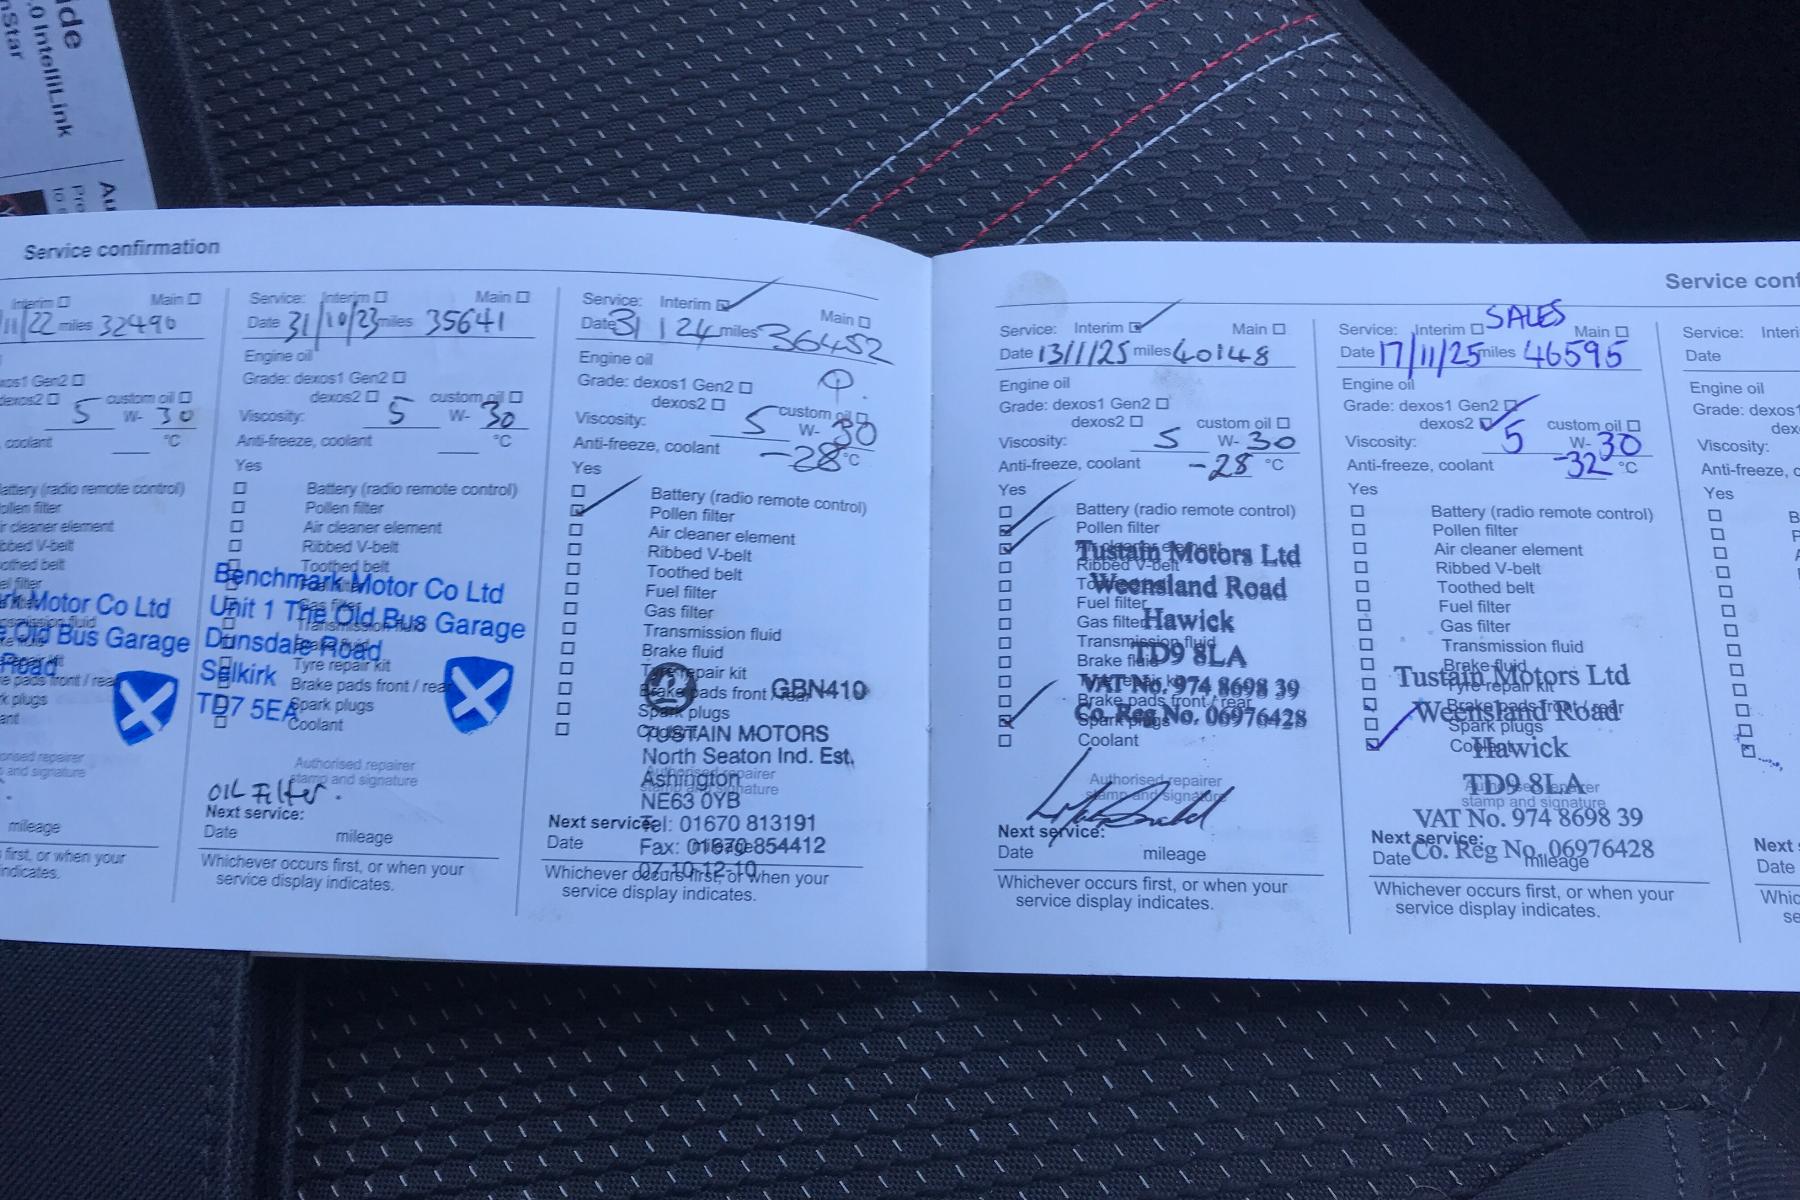 de
.0 IntelliLink
nStar
Au
Service confirmation
Interim Main
11/22 miles 32490
Gen2
dexos2 custom oil
5 W- 30
coolant °C
attery (radio remote control)
ollen filter
ir cleaner element
bbed V-belt
oothed belt
el filter
rk Motor Co Ltd
e Old Bus Garage
Road
e pads front / rear
k plugs
ant
orised repairer
and signature
mileage
first, or when your
indicates.
Service: Interim Main
Date 31/10/23 miles 35641
Engine oil
Grade: dexos1 Gen2
dexos2 custom oil
Viscosity: 5 W- 30
Anti-freeze, coolant °C
Yes
Battery (radio remote control)
Pollen filter
Air cleaner element
Ribbed V-belt
Toothed belt
Benchmark Motor Co Ltd
Gas filter
Unit 1 The Old Bus Garage
Transmission fluid
Dunsdale Road
Tyre repair kit
Selkirk
Brake pads front / rear
TD7 5EA
Spark plugs
Coolant
Authorised repairer
stamp and signature
OIL FILTER.
Next service:
Date mileage
Whichever occurs first, or when your
service display indicates.
Service: Interim Main
Date 31 1 24 miles 36452
Engine oil
Grade: dexos1 Gen2
dexos2 custom oil
Viscosity: 5 W- 30
Anti-freeze, coolant -28 °C
Yes
Battery (radio remote control)
Pollen filter
Air cleaner element
Ribbed V-belt
Toothed belt
Fuel filter
Gas filter
Transmission fluid
Brake fluid
Tyre repair kit
Brake pads front / rear
GBN410
Spark plugs
Coolant
TUSTAIN MOTORS
North Seaton Ind. Est.
Ashington
Authorised repairer
stamp and signature
NE63 0YB
Next service:
Tel: 01670 813191
Date mileage
Fax: 01670 854412
07-10-12-10
Whichever occurs first, or when your
service display indicates.
Service conf
Service: Interim Main
Date 13/1/25 miles 40148
Engine oil
Grade: dexos1 Gen2
dexos2 custom oil
Viscosity: 5 W- 30
Anti-freeze, coolant -28 °C
Yes
Battery (radio remote control)
Pollen filter
Air cleaner element
Tustain Motors Ltd
Ribbed V-belt
Weensland Road
Fuel filter
Gas filter
Hawick
Transmission fluid
Brake fluid
TD9 8LA
VAT No. 974 8698 39
Brake pads front / rear
Co. Reg No. 06976428
Spark plugs
Coolant
Authorised repairer
stamp and signature
Next service:
Date mileage
Whichever occurs first, or when your
service display indicates.
SALES
Service: Interim Main
Date 17/11/25 miles 46595
Engine oil
Grade: dexos1 Gen2
dexos2 custom oil
Viscosity: 5 W- 30
Anti-freeze, coolant -32 °C
Yes
Battery (radio remote control)
Pollen filter
Air cleaner element
Ribbed V-belt
Toothed belt
Fuel filter
Gas filter
Transmission fluid
Brake fluid
Tustain Motors Ltd
Tyre repair kit
Brake pads front / rear
Weensland Road
Spark plugs
Coolant
Hawick
TD9 8LA
Authorised repairer
stamp and signature
VAT No. 974 8698 39
Next service:
Co. Reg No. 06976428
Date mileage
Whichever occurs first, or when your
service display indicates.
Service: Interi
Date
Engine oil
Grade: dexos1
dex
Viscosity:
Anti-freeze, c
Yes
Next
Date
Whic
se